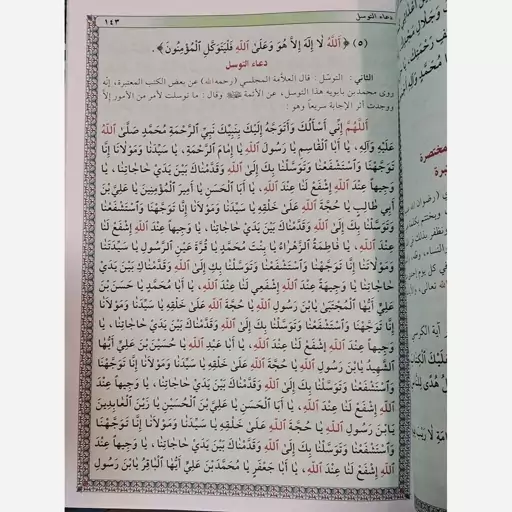 دعاء التوسل
١٤٣
(٥) ﴿اَللّٰهُ لٰا إِلٰهَ إِلاَّ هُوَ وَعَلَىٰ اللّٰهِ فَلْيَتَوَكَّلِ الْمُؤْمِنُونَ﴾.
دعاء التوسل
الثاني: التوسّل: قال العلاّمة المجلسي (رحمه الله) عن بعض الكتب المعتبرة، إنّه
روى محمد بن بابويه هذا التوسل، عن الأئمة ﷺ وقال: ما توسلت لأمر من الأمور إلاّ
ووجدت أثر الإجابة سريعاً وهو:
اَللّٰهُمَّ إِنِّي أَسْأَلُكَ وَأَتَوَجَّهُ إِلَيْكَ بِنَبِيِّكَ نَبِيِّ الرَّحْمَةِ مُحَمَّدٍ صَلَّى اللّٰهُ
عَلَيْهِ وَآلِهِ، يٰا أَبَا الْقٰاسِمِ يٰا رَسُولَ اللّٰهِ يٰا إِمٰامَ الرَّحْمَةِ، يٰا سَيِّدَنٰا وَمَوْلاٰنٰا إِنّٰا
تَوَجَّهْنٰا وَاسْتَشْفَعْنٰا وَتَوَسَّلْنٰا بِكَ إِلَى اللّٰهِ وَقَدَّمْنٰاكَ بَيْنَ يَدَيْ حٰاجٰاتِنٰا، يٰا
وَجِيهاً عِنْدَ اللّٰهِ إِشْفَعْ لَنٰا عِنْدَ اللّٰهِ، يٰا أَبَا الْحَسَنِ يٰا أَمِيرَ الْمُؤْمِنِينَ يٰا عَلِيَّ بْنَ
أَبِي طٰالِبٍ يٰا حُجَّةَ اللّٰهِ عَلَىٰ خَلْقِهِ يٰا سَيِّدَنٰا وَمَوْلاٰنٰا إِنّٰا تَوَجَّهْنٰا وَاسْتَشْفَعْنٰا
وَتَوَسَّلْنٰا بِكَ إِلَى اللّٰهِ وَقَدَّمْنٰاكَ بَيْنَ يَدَيْ حٰاجٰاتِنٰا، يٰا وَجِيهاً عِنْدَ اللّٰهِ إِشْفَعْ لَنٰا
عِنْدَ اللّٰهِ، يٰا فٰاطِمَةُ الزَّهْرٰاءُ يٰا بِنْتَ مُحَمَّدٍ يٰا قُرَّةَ عَيْنِ الرَّسُولِ يٰا سَيِّدَتَنٰا
وَمَوْلاٰتَنٰا إِنّٰا تَوَجَّهْنٰا وَاسْتَشْفَعْنٰا وَتَوَسَّلْنٰا بِكِ إِلَى اللّٰهِ وَقَدَّمْنٰاكِ بَيْنَ يَدَيْ
حٰاجٰاتِنٰا يٰا وَجِيهَةً عِنْدَ اللّٰهِ إِشْفَعِي لَنٰا عِنْدَ اللّٰهِ، يٰا أَبٰا مُحَمَّدٍ يٰا حَسَنَ بْنَ
عَلِيٍّ أَيُّهَا الْمُجْتَبَىٰ يَابْنَ رَسُولِ اللّٰهِ يٰا حُجَّةَ اللّٰهِ عَلَىٰ خَلْقِهِ يٰا سَيِّدَنٰا وَمَوْلاٰنٰا
إِنّٰا تَوَجَّهْنٰا وَاسْتَشْفَعْنٰا وَتَوَسَّلْنٰا بِكَ إِلَى اللّٰهِ وَقَدَّمْنٰاكَ بَيْنَ يَدَيْ حٰاجٰاتِنٰا، يٰا
وَجِيهاً عِنْدَ اللّٰهِ إِشْفَعْ لَنٰا عِنْدَ اللّٰهِ، يٰا أَبٰا عَبْدِ اللّٰهِ يٰا حُسَيْنَ بْنَ عَلِيٍّ أَيُّهَا
الشَّهِيدُ يَابْنَ رَسُولِ اللّٰهِ يٰا حُجَّةَ اللّٰهِ عَلَىٰ خَلْقِهِ يٰا سَيِّدَنٰا وَمَوْلاٰنٰا إِنّٰا تَوَجَّهْنٰا
وَاسْتَشْفَعْنٰا وَتَوَسَّلْنٰا بِكَ إِلَى اللّٰهِ وَقَدَّمْنٰاكَ بَيْنَ يَدَيْ حٰاجٰاتِنٰا، يٰا وَجِيهاً عِنْدَ
اللّٰهِ إِشْفَعْ لَنٰا عِنْدَ اللّٰهِ، يٰا أَبَا الْحَسَنِ يٰا عَلِيَّ بْنَ الْحُسَيْنِ يٰا زَيْنَ الْعٰابِدِينَ
يَابْنَ رَسُولِ اللّٰهِ يٰا حُجَّةَ اللّٰهِ عَلَىٰ خَلْقِهِ يٰا سَيِّدَنٰا وَمَوْلاٰنٰا إِنّٰا تَوَجَّهْنٰا
وَاسْتَشْفَعْنٰا وَتَوَسَّلْنٰا بِكَ إِلَى اللّٰهِ وَقَدَّمْنٰاكَ بَيْنَ يَدَيْ حٰاجٰاتِنٰا، يٰا وَجِيهاً عِنْدَ
اللّٰهِ إِشْفَعْ لَنٰا عِنْدَ اللّٰهِ، يٰا أَبٰا جَعْفَرٍ يٰا مُحَمَّدَ بْنَ عَلِيٍّ أَيُّهَا الْبٰاقِرُ يَابْنَ رَسُولِ